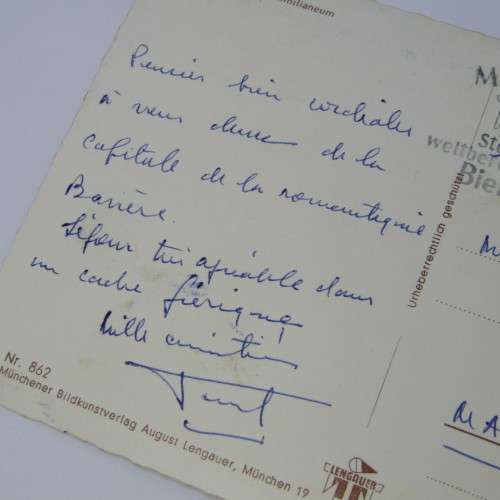 milianeum
Pensées bien cordiales
à vous deux de la
capitale de la romantique
Bavière.
Séjour très agréable dans
un cadre féerique!
Mille amitiés
Nr. 862
Münchener Bildkunstverlag August Lengauer, München 19
LENGAUER
Urheberrechtlich geschützt
M
Sta
weltber
Bie
M
MA